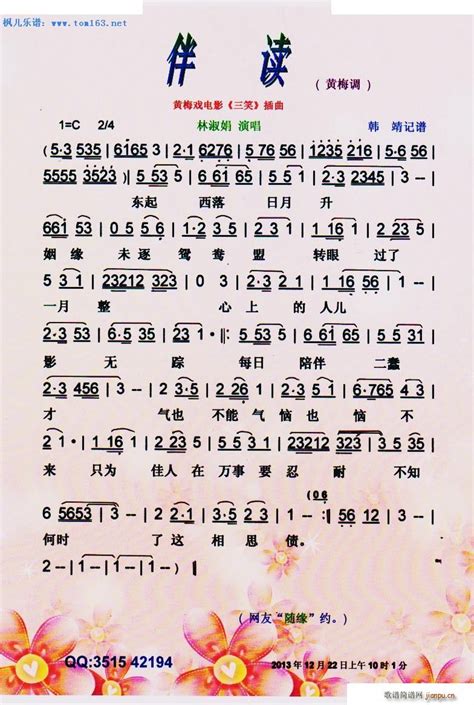 枫儿乐谱：www.tom163.net
伴 读
（黄梅调）
黄梅戏电影《三笑》插曲
1=C 2/4 林淑娟 演唱 韩 靖记谱
(5·3 535 | 6165 3 | 2·3 25 | 2·1 6276 | 5 76 56 | 1235 216 | 5·5555 |
5555 3523) | 5 53 5 | 6 61 5 | 2·3 23 1 | 2·3 43 | 3 -- |
东起 西落 日月 升
661 53 | 0 5 35 | 1·2 3 5 | 2·3 23 1 | 1 16 1 | 2·3 535 |
姻缘 未逐 鸳鸯 盟 转眼 过了
5 31 | 23212 323 | 5 -- | 3 5 3 | 2·3 21 | 1 16 56 | 1 -- |
一月 整 心 上 的 人儿
2·3 53 | 535 23 | 1 · | 5 53 5 | 6 61 65 | 5·3 535 |
影 无 踪 每日 陪伴 二蠢
2·3 456 | 3 -- | 3 23 | 1·2 53 | 2 321 65 | 6·765 4 |
才 气也 不能 气 恼 也 恼 不
2 1· | 1 16 1 | 2 23 5 | 5 31 | 23212 323 | 5·3 535 |
来 只为 佳人 在 万事 要 忍 耐 不知
(0 6
6 5653 | 5 -- | 3 · 5 | 2·3 21 | 0 5 3 5 | 6· 5 | 1 -- |
何时 了 这 相思 债。
2 -- | 1 -- | 1 -- | 1 -- )‖
（网友“随缘”约。）
QQ:3515 42194
2013年12月22日上午10时1分
歌谱简谱网 jianpu.cn